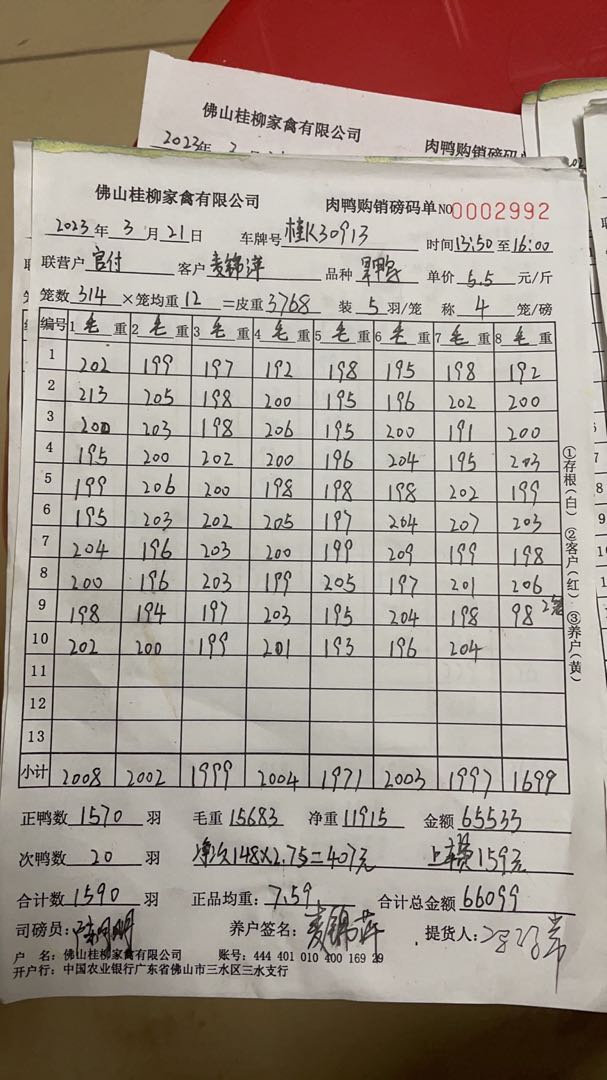 佛山桂柳家禽有限公司
2023年
肉鸭购销磅码单
佛山桂柳家禽有限公司 肉鸭购销磅码单NO 0002992
2023年3月21日 车牌号 桂K30913 时间13:50至16:00
联营户 官付 客户 麦锦萍 品种 单价 5.5 元/斤
笼数 314 ×笼均重 12 =皮重 3768 装 5 羽/笼 称 4 笼/磅
编号 1 毛 重 2 毛 重 3 毛 重 4 毛 重 5 毛 重 6 毛 重 7 毛 重 8 毛 重
1 202 199 197 192 198 195 198 192
2 213 205 198 200 195 196 202 200
3 200 203 198 206 195 200 191 200
4 195 200 202 200 196 204 195 203
5 199 206 200 198 198 198 202 199
6 195 203 202 205 197 204 207 203
7 204 196 203 200 199 209 199 198
8 200 196 203 199 205 197 201 206
9 198 194 197 203 195 204 198 98 2笼
10 202 200 199 201 193 196 204
11
12
13
小计 2008 2002 1999 2004 1971 2003 1997 1699
①存根(白) ②客户(红) ③养户(黄)
正鸭数 1570 羽 毛重 15683 净重 11915 金额 65533
次鸭数 20 羽 148×2.75=407元 1593元
合计数 1590 羽 正品均重: 7.59 合计总金额 66099
司磅员: 养户签名: 麦锦萍 提货人:
户 名: 佛山桂柳家禽有限公司 账号: 444 401 010 400 169 29
开户行: 中国农业银行广东省佛山市三水区三水支行